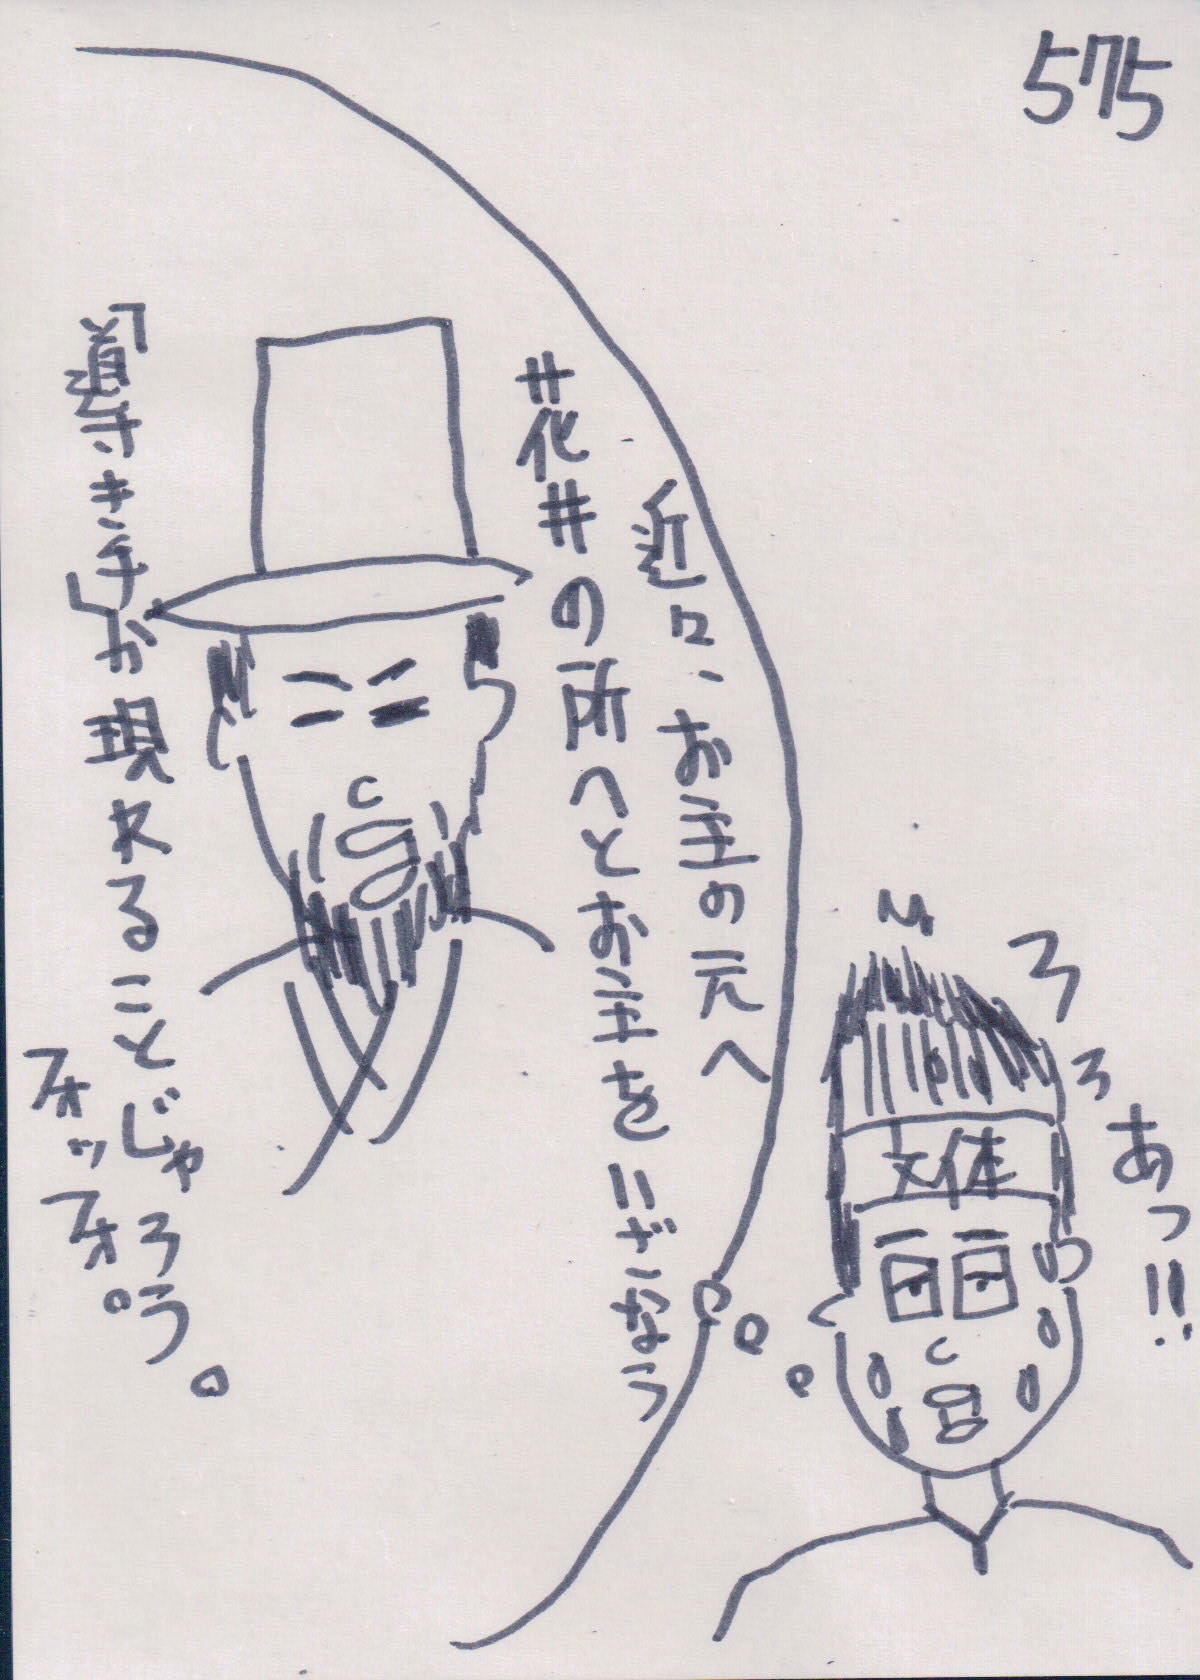 575
近々、お主の元へ
花井の所へとお主をいざなう
「導き手」が現れることじゃろう。
フォッフォ。
あっ!!
文体